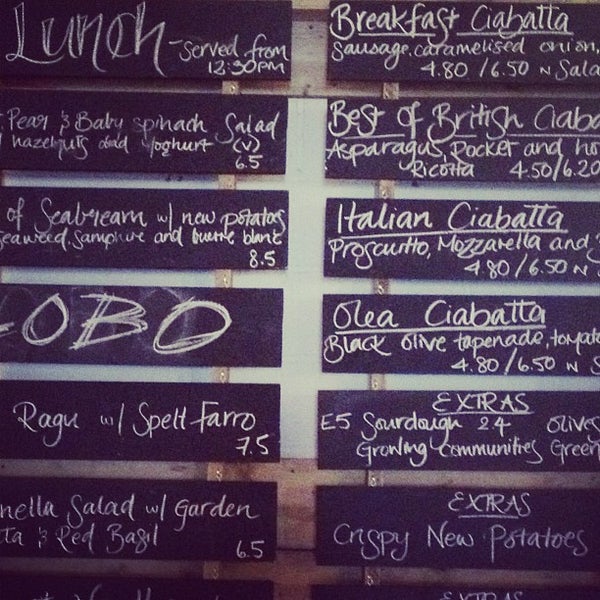 Lunch - served from
12:30pm
Pear & Baby spinach Salad
hazelnuts and yoghurt (v)
6.5
of Seabream w/ new potatoes
seaweed, Samphire and buerre blanc
8.5
OBO
Ragu w/ Spelt Farro
7.5
nella Salad w/ Garden
ta & Red Basil
6.5
Breakfast Ciabatta
Sausage, caramelised onion,
4.80 / 6.50 w Sala
Best of British Ciaba
Asparagus, Rocket and ho
Ricotta 4.50/6.20
Italian Ciabatta
Proscuitto, Mozzarella and
4.80 / 6.50 w S
Olea Ciabatta
Black olive tapenade, tomato
4.80 / 6.50 w S
EXTRAS
E5 Sourdough 2.4 Olives
Growing Communities Green
EXTRAS
Crispy New Potatoes
EXTRAS